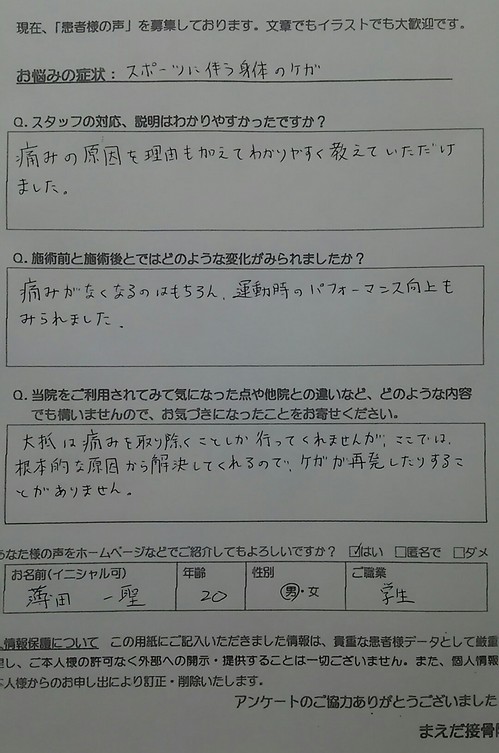 現在、「患者様の声」を募集しております。文章でもイラストでも大歓迎です。
お悩みの症状： スポーツに伴う身体のケガ
Q. スタッフの対応、説明はわかりやすかったですか？
痛みの原因を理由も加えてわかりやすく教えていただけ
ました。
Q. 施術前と施術後とではどのような変化がみられましたか？
痛みがなくなるのはもちろん、運動時のパフォーマンス向上も
みられました。
Q. 当院をご利用されてみて気になった点や他院との違いなど、どのような内容
でも構いませんので、お気づきになったことをお寄せください。
大抵は痛みを取り除くことしか行ってくれませんが、ここでは、
根本的な原因から解決してくれるので、ケガが再発したりするこ
とがありません。
あなた様の声をホームページなどでご紹介してもよろしいですか？ ☑はい □匿名で □ダメ
お名前(イニシャル可) 年齢 性別 ご職業
薄田 一聖 20 男・女 学生
人情報保護について この用紙にご記入いただきました情報は、貴重な患者様データとして厳重
理し、ご本人様の許可なく外部への開示・提供することは一切ございません。また、個人情報
本人様からのお申し出により訂正・削除いたします。
アンケートのご協力ありがとうございました
まえだ接骨院